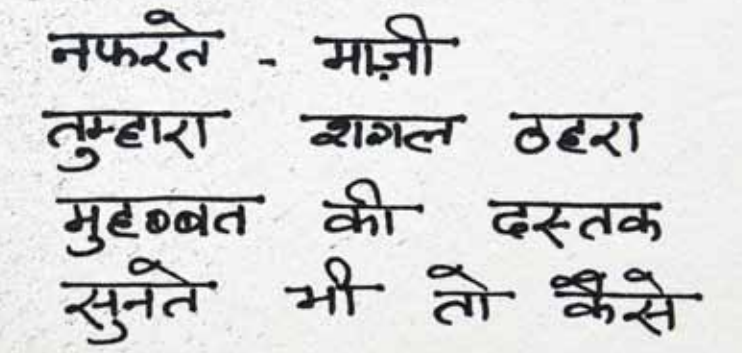 नफरते - माज़ी
तुम्हारा शगल ठहरा
मुहब्बत की दस्तक
सुनते भी तो कैसे